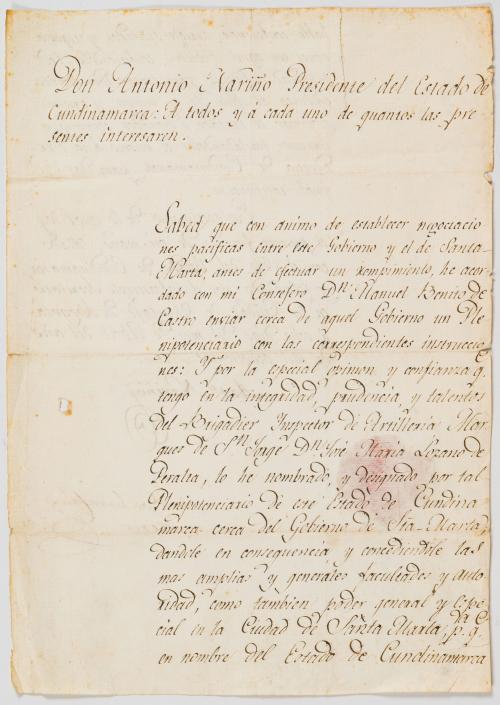 Don Antonio Nariño Presidente del Estado de
Cundinamarca: A todos y á cada uno de quantos las pre
sentes interesaren.
Sabed que con animo de establecer negociacio
nes pacificas entre este Gobierno y el de Santa
Marta, antes de efectuar un rompimiento, he acor
dado con mi Consejero Dn. Manuel Benito de
Castro enviar cerca de aquel Gobierno un Ple
nipotenciario con las correspondientes instruccio
nes: Y por la especial opinion y confianza q.
tengo en la integridad, prudencia, y talentos
del Brigadier Inspector de Artilleria Mar
ques de Sn. Jorge Dn. José Maria Lozano de
Peralta, lo he nombrado, y designado por tal
Plenipotenciario de este Estado de Cundina
marca cerca del Gobierno de Sta. Marta,
dandole en consequencia y concediendole las
mas amplias y generales facultades y auto
ridad, como tambien poder general y espe
cial en la Ciudad de Santa Marta, p. q.
en nombre del Estado de Cundinamarca